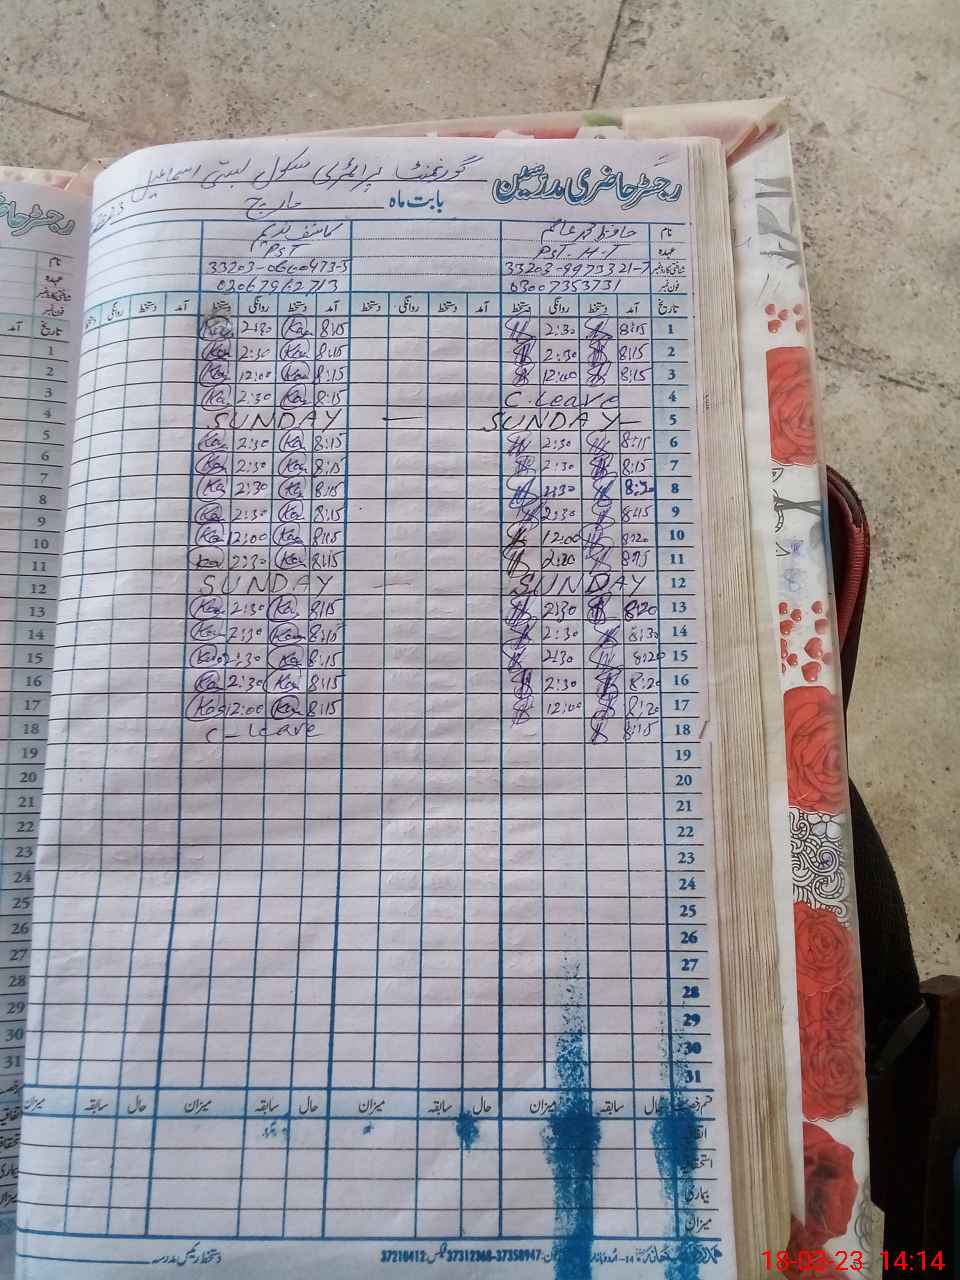 رجسٹر حاضری مدرسین گورنمنٹ پرائمری سکول بستی اسماعیل
بابت ماہ مارچ
نام حافظ محمد عالم کاشف ندیم
عہدہ PST-H-T PST
شناختی کارڈ نمبر 33203-9973321-7
فون نمبر 03007353731
تاریخ آمد دستخط روانگی دستخط آمد دستخط روانگی دستخط آمد دستخط روانگی دستخط آمد دستخط روانگی دستخط
1 8:15 2:30 8:15 2:30
2 8:15 2:30 8:15 2:30
3 8:15 12:00 8:15 12:00
4 C.Leave 8:15 2:30
5 SUNDAY — SUNDAY
6 8:15 2:30 8:15 2:30
7 8:15 2:30 8:15 2:30
8 8:20 2:30 8:15 2:30
9 8:15 2:30 8:15 2:30
10 8:20 12:00 8:15 12:00
11 8:15 2:30 8:15 2:30
12 SUNDAY — SUNDAY
13 8:20 2:30 8:15 2:30
14 8:30 2:30 8:15 2:30
15 8:20 2:30 8:15 2:30
16 8:20 2:30 8:15 2:30
17 8:20 12:00 8:15 12:00
18 8:15 C-Leave
19
20
21
22
23
24
25
26
27
28
29
30
31
قسم رخصت حال سابقہ میزان حال سابقہ میزان حال سابقہ میزان حال سابقہ میزان
اتفاقیہ
استحقاقیہ
بیماری
میزان
37210412 فیکس 37312368-37358947
دستخط رئیس مدرسہ
18-03-23 14:14